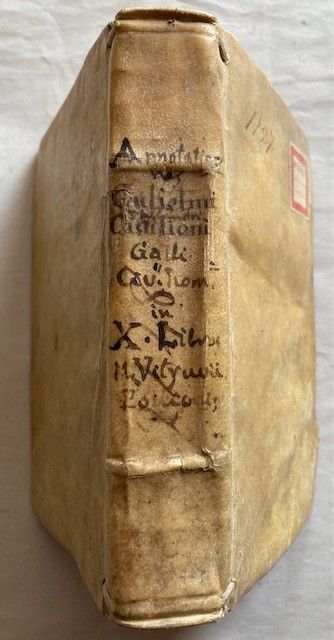 Annotatio
nes
Gulielmi
Castilioni
Galli
Civ. Rom.
in
X. Libros
M. Vitruvii